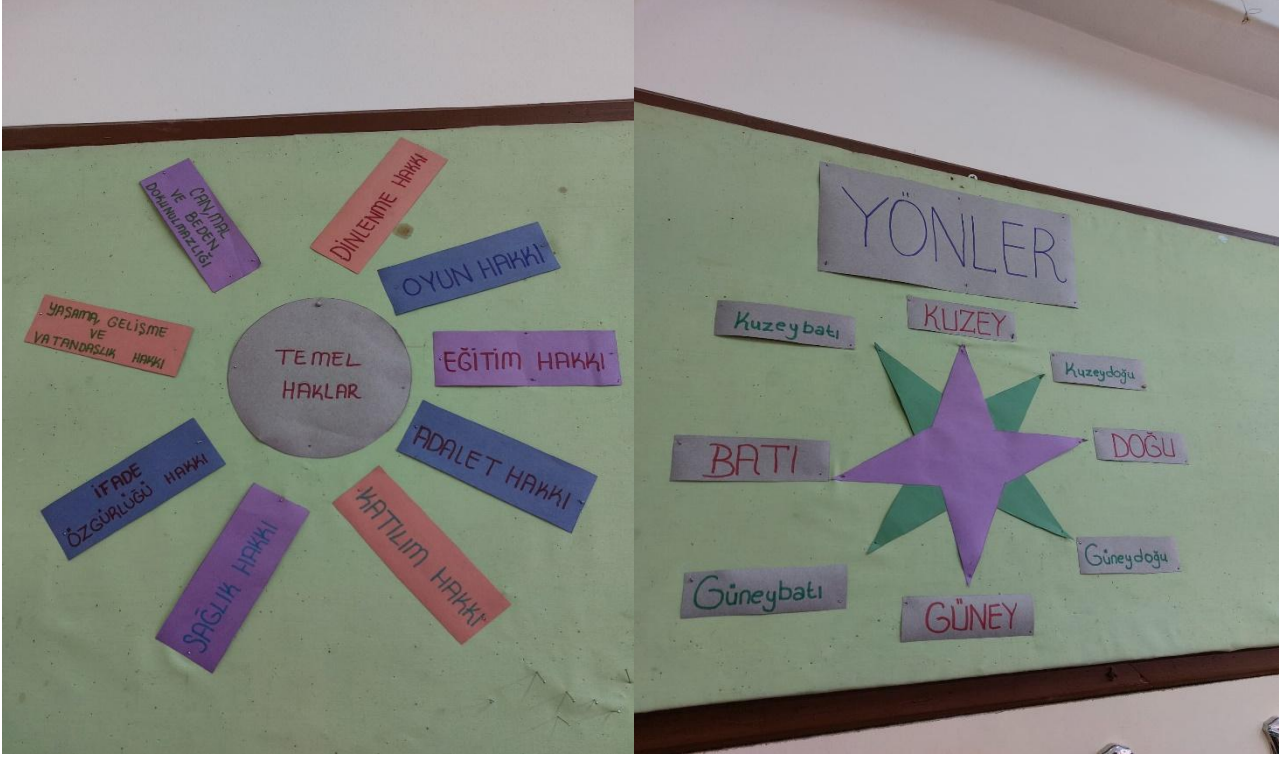 TEMEL
HAKLAR
CAN, MAL
VE BEDEN
DOKUNULMAZLIĞI
DİNLENME HAKKI
OYUN HAKKI
EĞİTİM HAKKI
ADALET HAKKI
KATILIM HAKKI
SAĞLIK HAKKI
İFADE
ÖZGÜRLÜĞÜ HAKKI
YAŞAMA, GELİŞME
VE
VATANDAŞLIK HAKKI
YÖNLER
Kuzeybatı
KUZEY
Kuzeydoğu
BATI
DOĞU
Güneybatı
GÜNEY
Güneydoğu